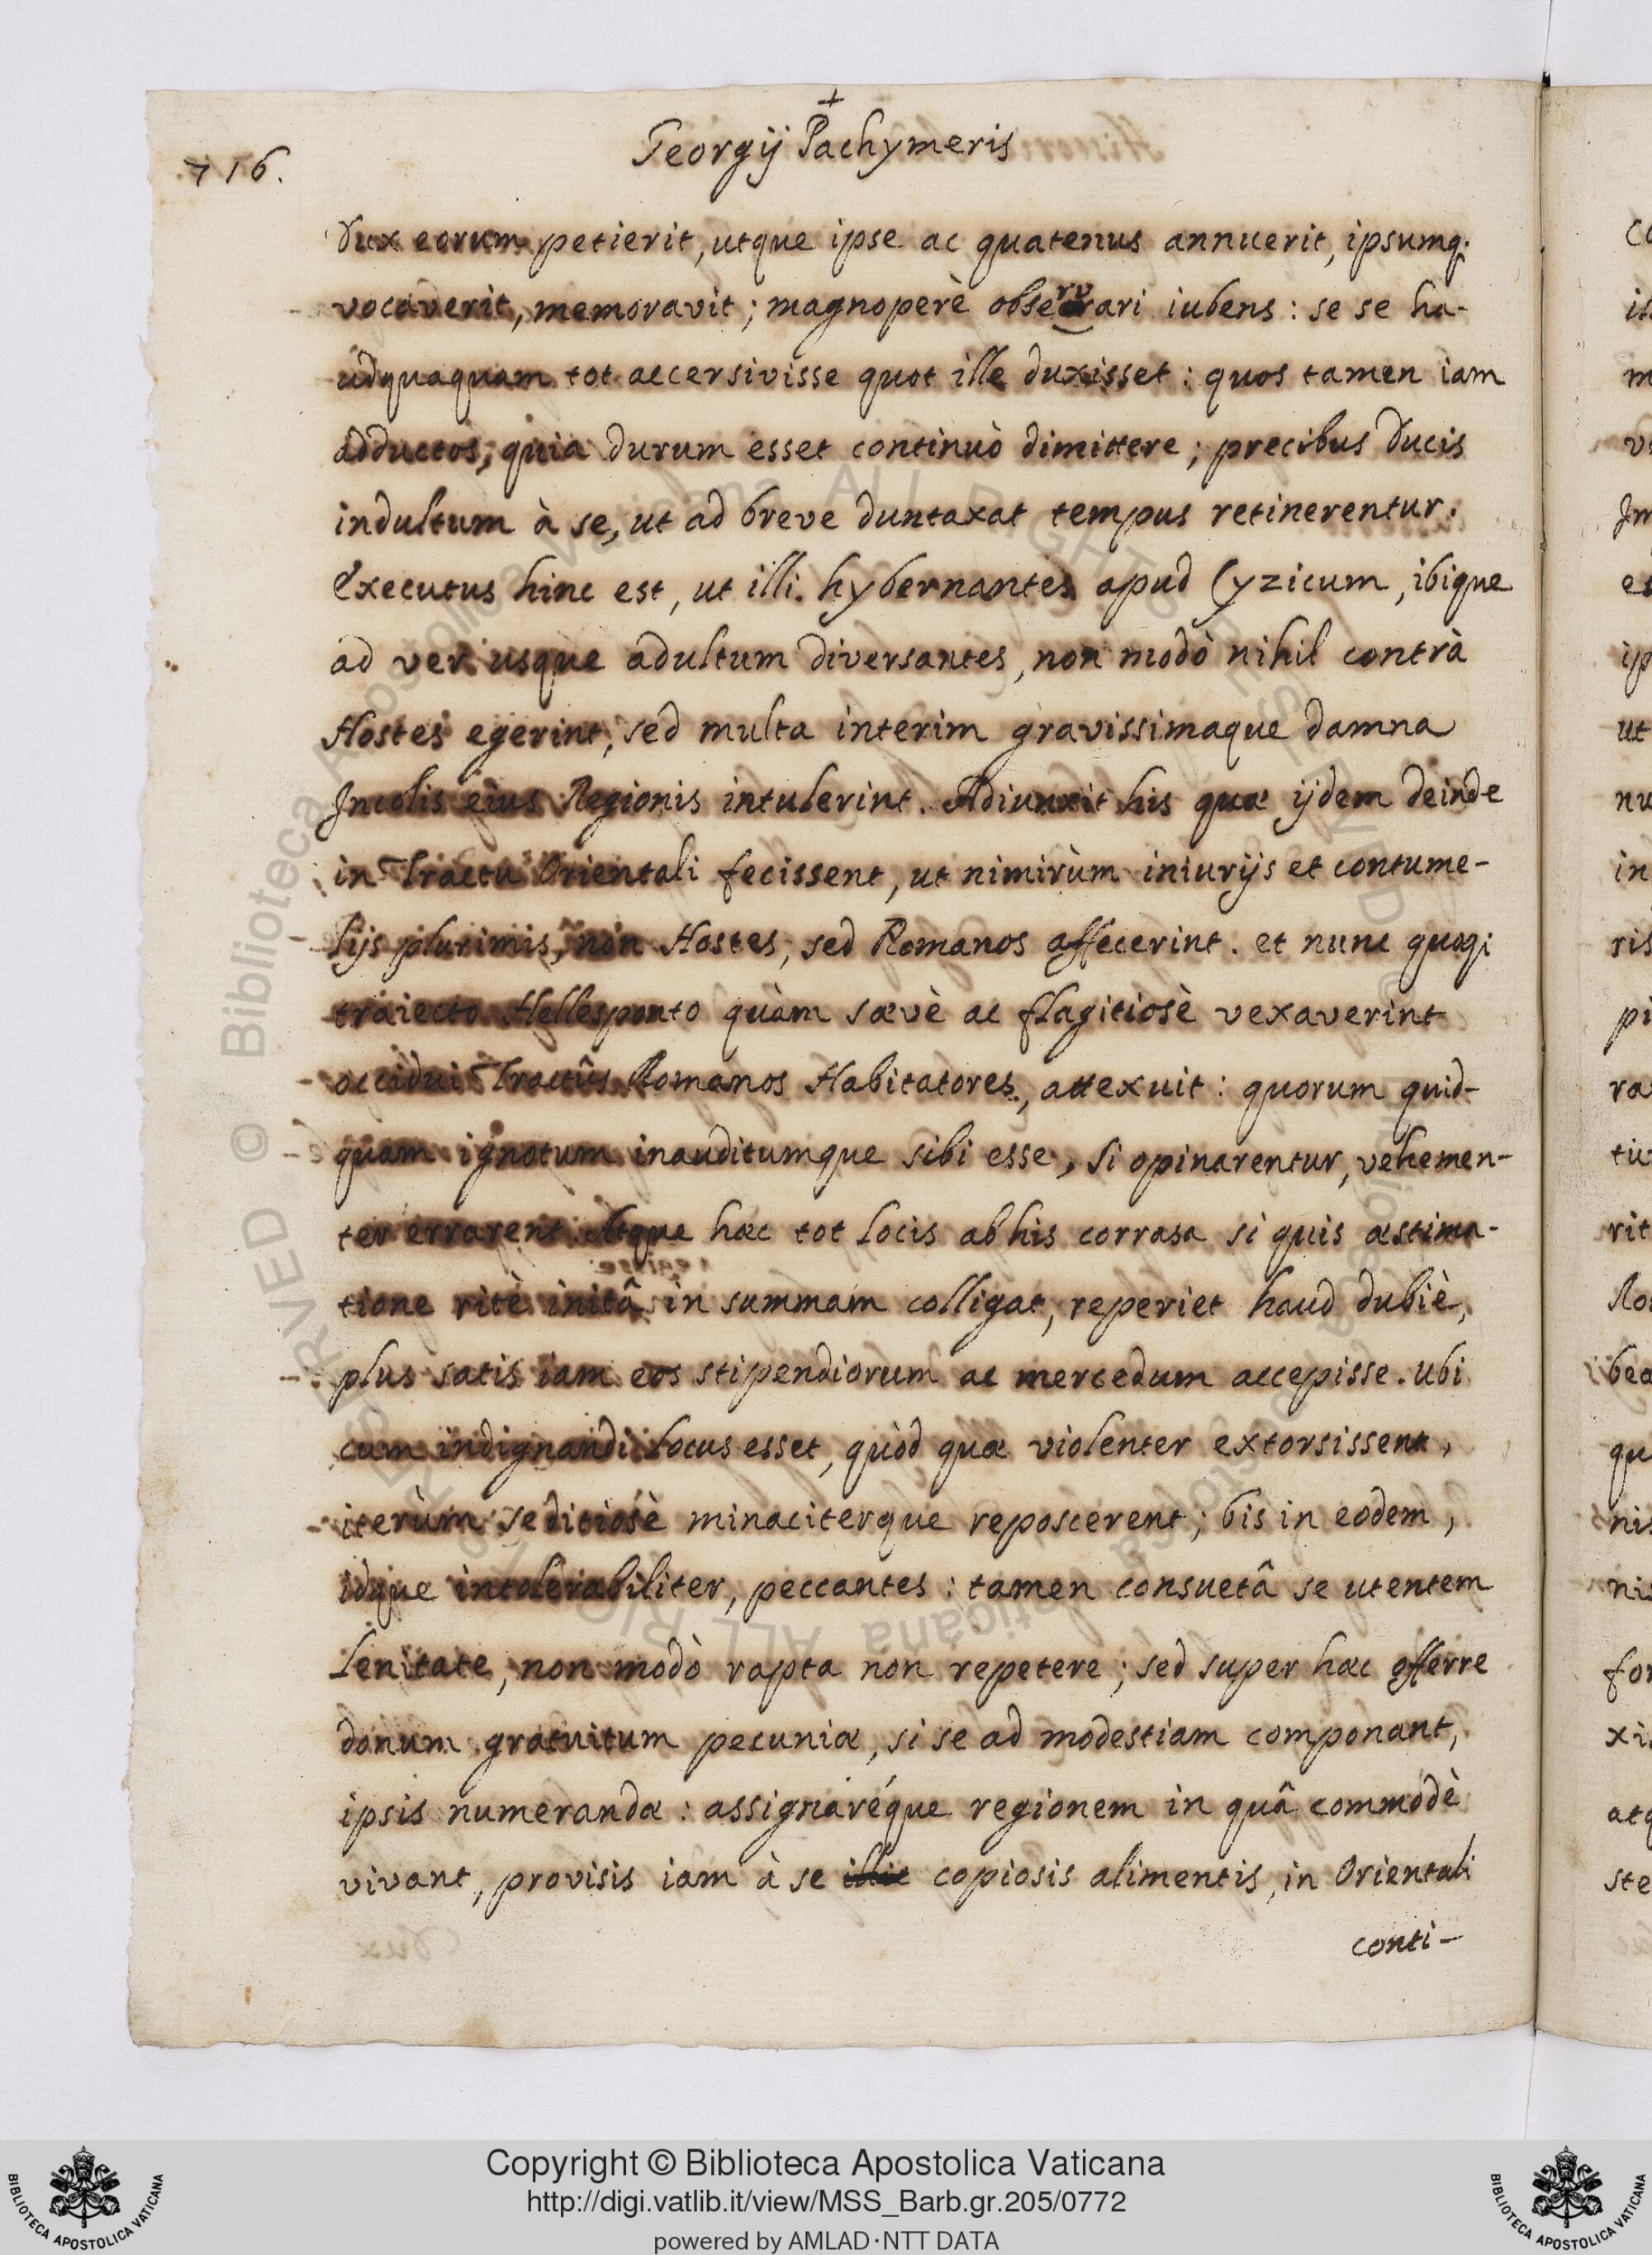 716.
+
Georgij Pachymeris
Dux eorum petierit, utque ipse ac quatenus annuerit, ipsumq;
vocaverit, memoravit; magnoperè observari iubens: se se ha-
udquaquam tot accersivisse quot ille duxisset: quos tamen iam
adductos, quia durum esset continuò dimittere; precibus Ducis
indultum à se, ut ad breve duntaxat tempus retinerentur.
Executus hinc est, ut illi hybernantes apud Cyzicum, ibique
ad ver usque adultum diversantes, non modò nihil contrà
Hostes egerint, sed multa interim gravissimaque damna
Incolis eius Regionis intulerint. Adiunxit his quæ ijdem deinde
in Tractu Orientali fecissent, ut nimirùm iniurijs et contume-
lijs plurimis, non Hostes, sed Romanos affecerint. et nunc quoq;
traiecto Hellesponto quàm sævè ac flagitiosè vexaverint
occidui Tractûs Romanos Habitatores, attexuit: quorum quid-
quam ignotum inauditumque sibi esse, si opinarentur, vehemen-
ter errarent. Atque hæc tot locis ab his corrasa si quis æstima-
tione ritè initâ in summam colligat, reperiet haud dubiè,
plus satis iam eos stipendiorum ac mercedum accepisse. Ubi
cum indignandi locus esset, quòd quæ violenter extorsissent,
iterùm seditiosè minaciterque reposcerent; bis in eodem,
idque intolerabiliter, peccantes: tamen consuetâ se utentem
lenitate, non modò rapta non repetere; sed super hæc offerre
donum gratuitum pecuniæ, si se ad modestiam componant,
ipsis numerandæ: assignaréque regionem in quâ commodè
vivant, provisis iam à se illic copiosis alimentis, in Orientali
conti-
© Biblioteca Apostolica Vaticana ALL RIGHTS RESERVED
Copyright © Biblioteca Apostolica Vaticana
http://digi.vatlib.it/view/MSS_Barb.gr.205/0772
powered by AMLAD·NTT DATA
BIBLIOTECA APOSTOLICA VATICANA
BIBLIOTECA APOSTOLICA VATICANA